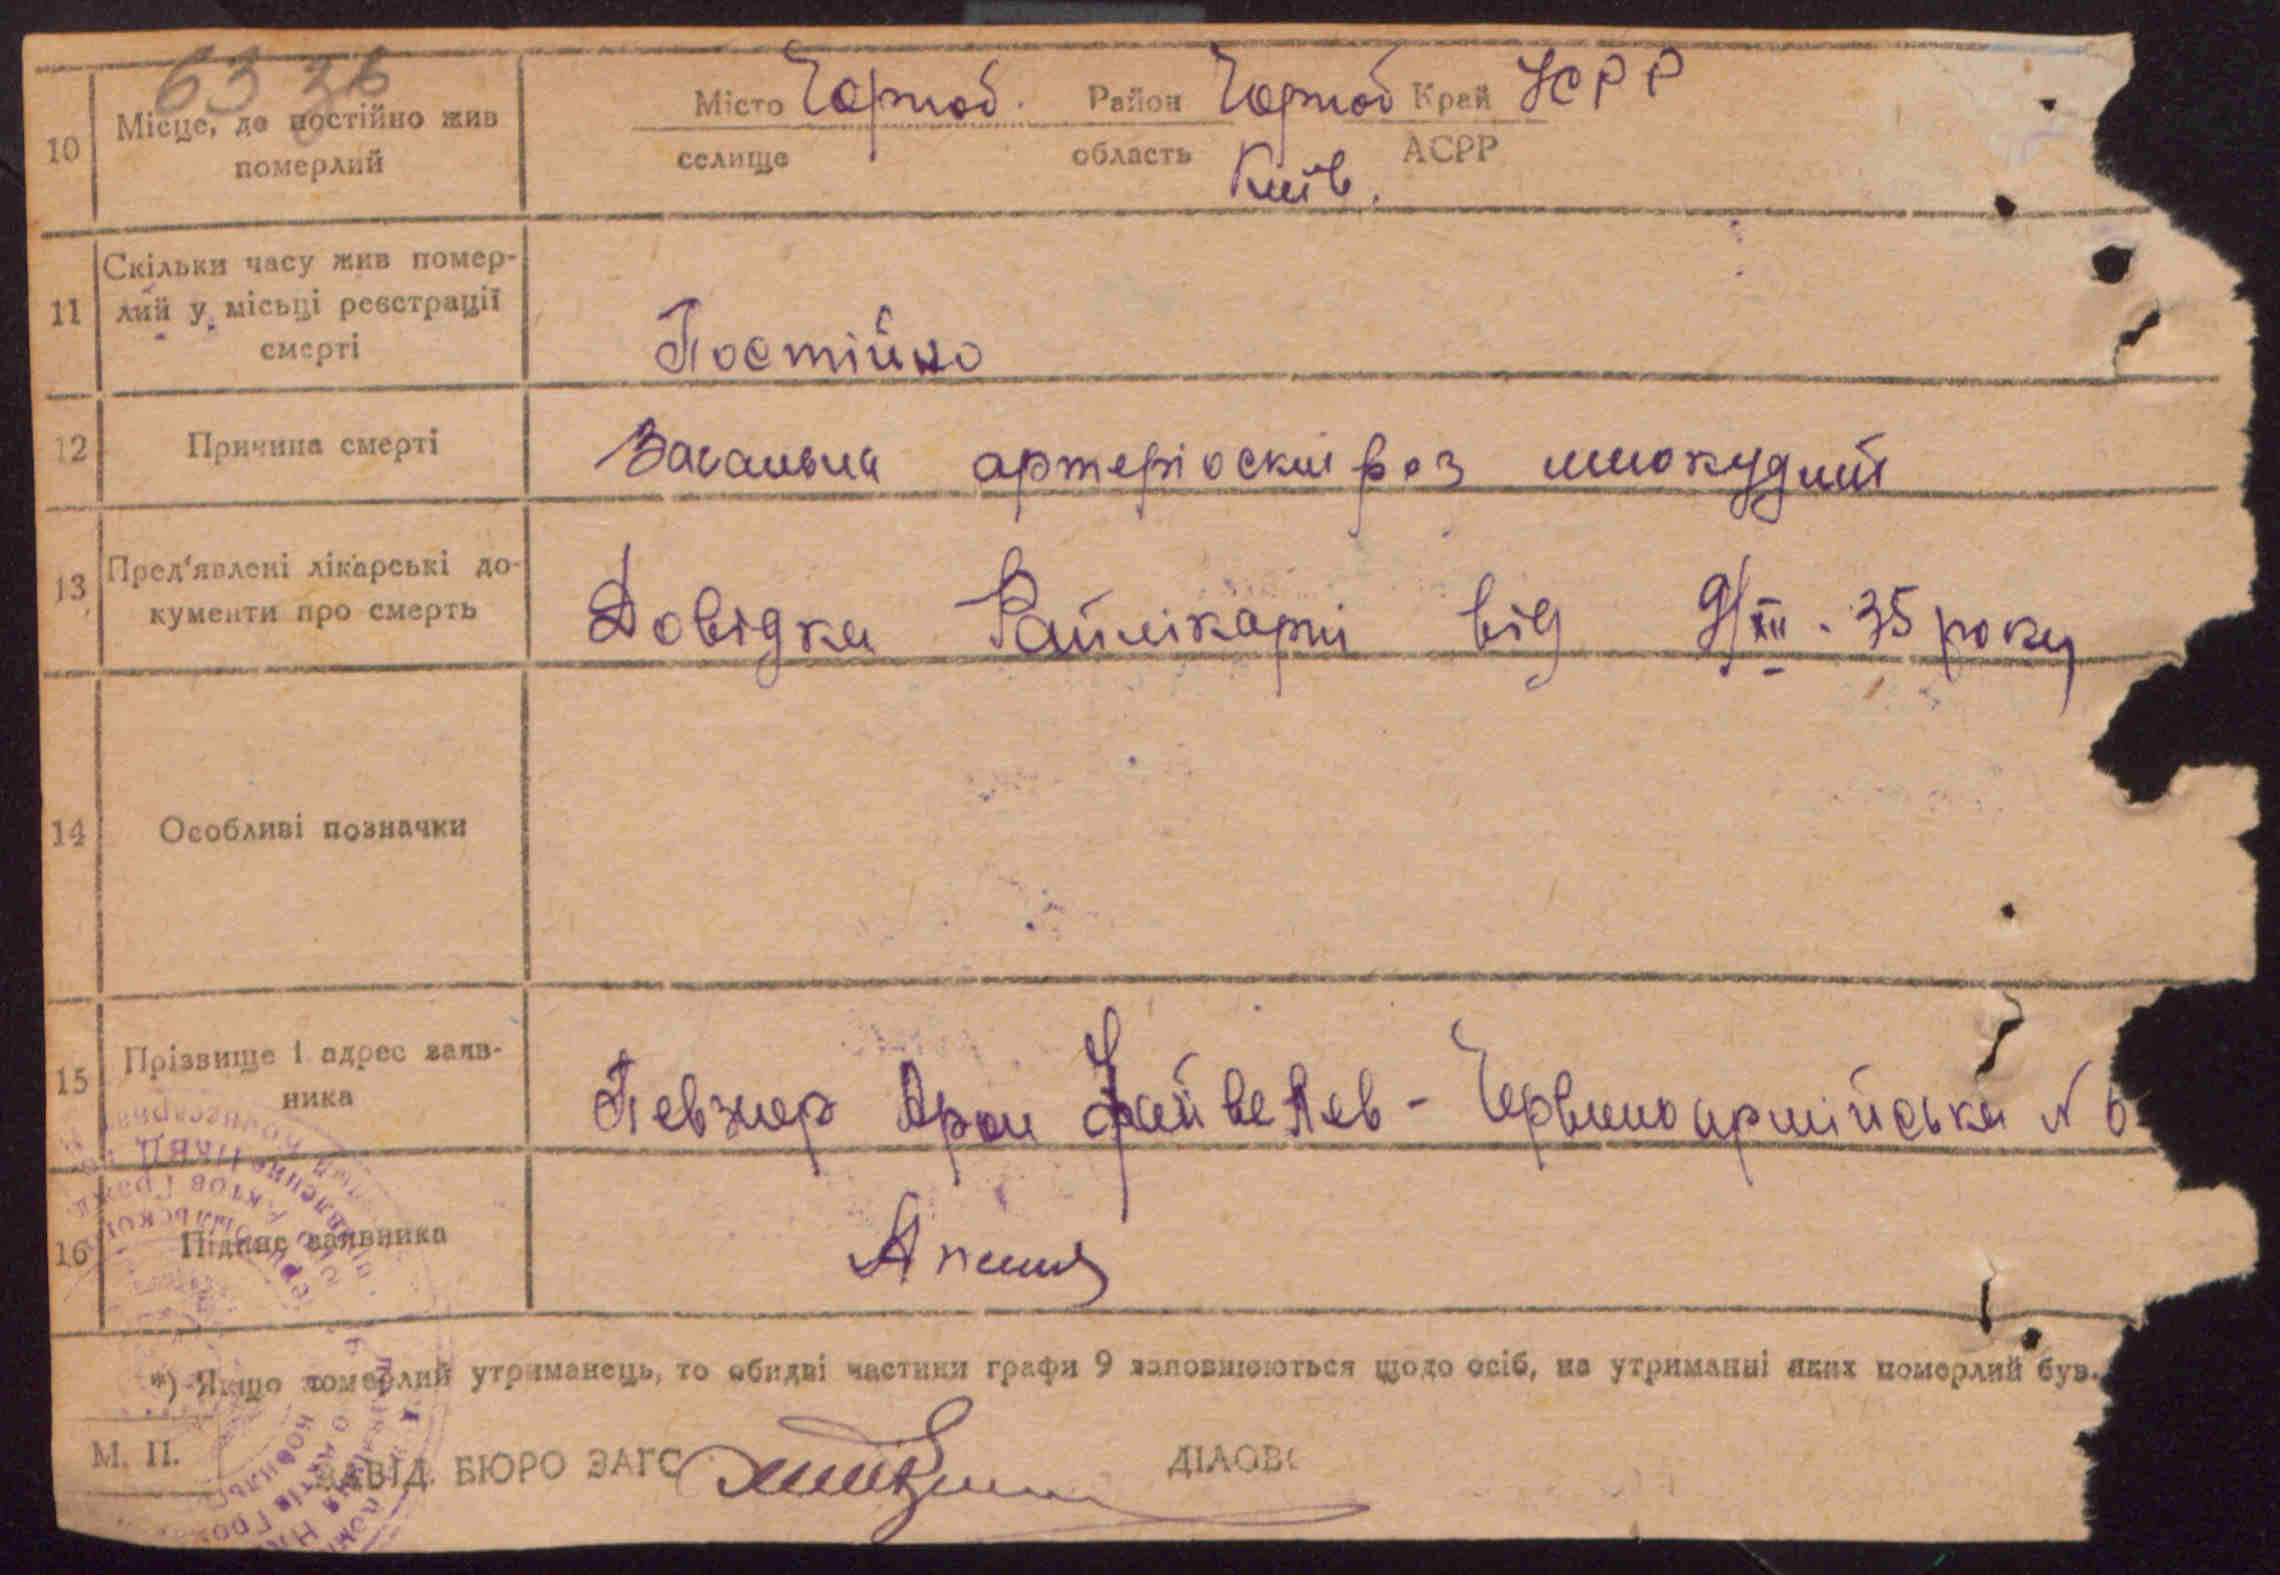 63 зв
10 Місце, де постійно жив Місто Чорноб. Район Чорноб Край УСРР
померлий селище область Київ. АСРР
Скільки часу жив помер-
11 лий у місьці реєстрації
смерті Постійно
12 Причина смерті Загальна артеріоскліроз
13 Пред'явлені лікарські до-
кументи про смерть Довідка Райлікарні від 9/XII - 35 року
14 Особливі позначки
15 Прізвище і адрес заяв-
ника Певзнер Арон Файвелев - Червоноармійська N 6
16 Підпис заявника
*) Якщо померлий утриманець, то обидві частини графи 9 заповнюються щодо осіб, на утриманні яких померлий був.
М. П. ЗАВІД. БЮРО ЗАГС ДІЛОВ